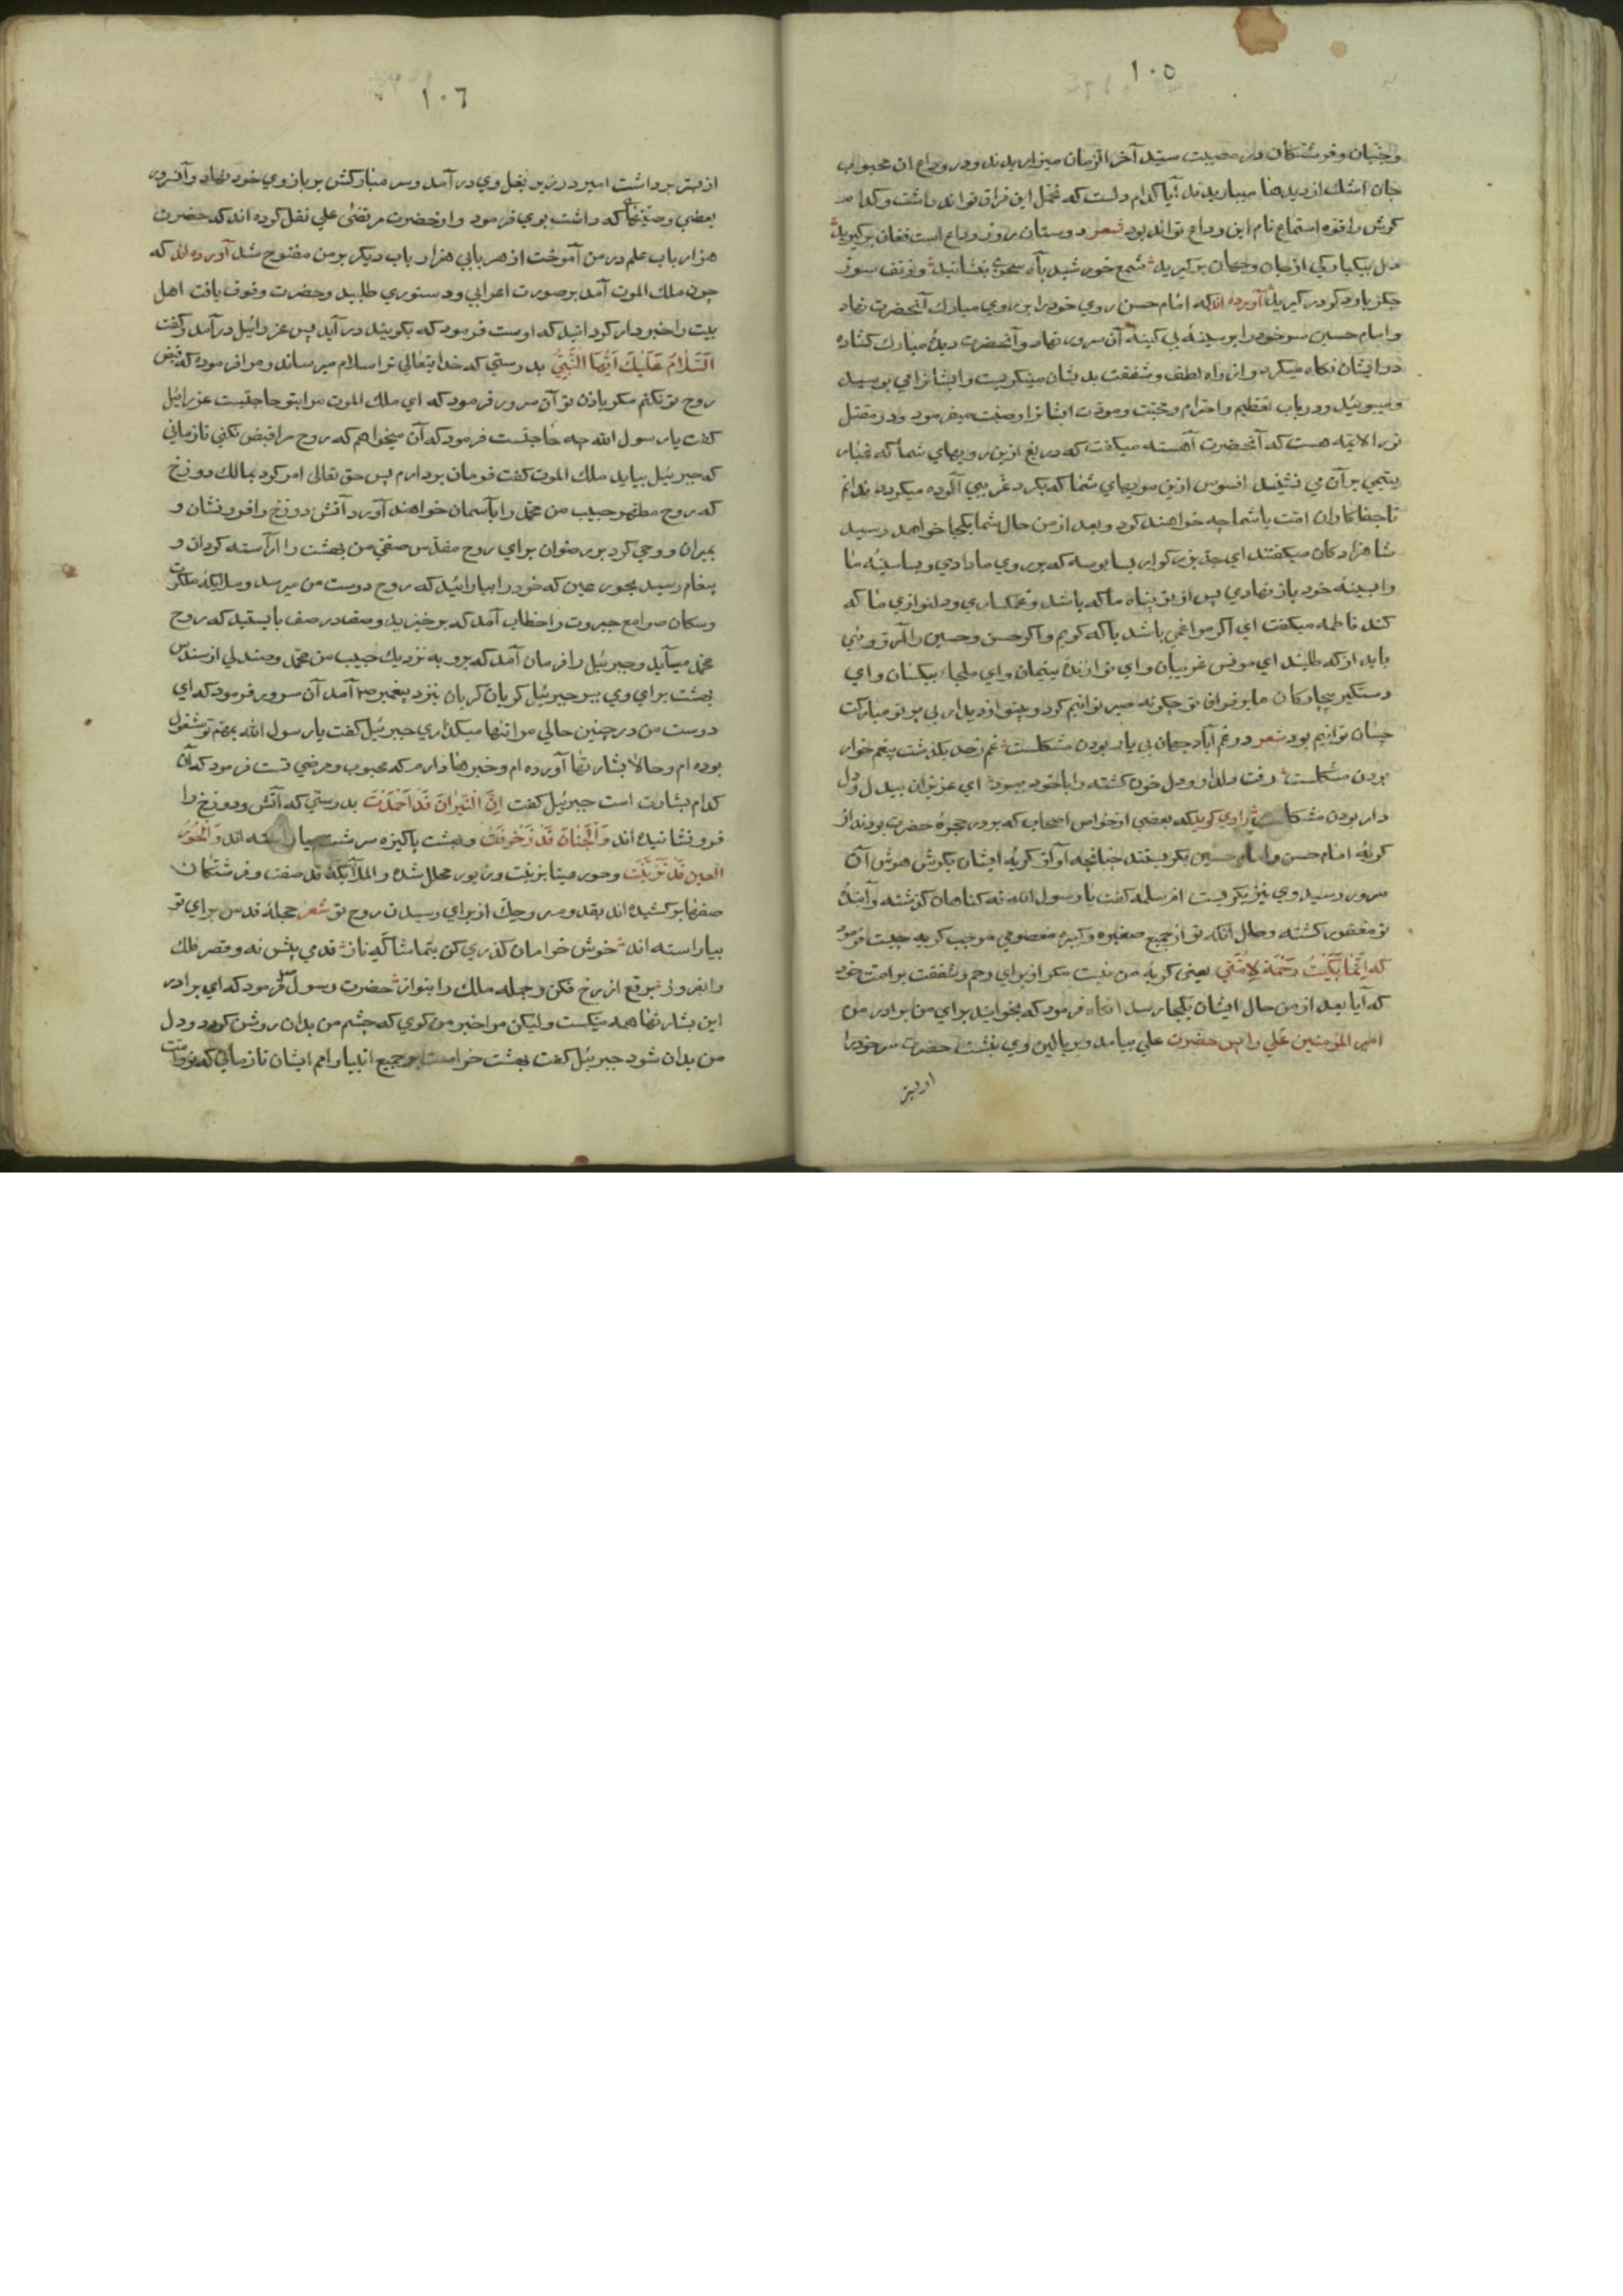 ١٠٥
وجنیان وفرشتکان در مصیبت سید آخر الزمان میزاریدند ودر وداع ان محبوب
جان اشك از دیدها میباریدند آیا کدام دلست که تحمل این فراق تواند داشت وکدام
کوش را قوه استماع نام این وداع تواند بود شعر دوستان روز وداع است فغان برکیرید
دل بیکبارکی از جان وجهان برکیرید شمع خورشید بآه سحری بنشانید وز تف سوز
جکر یاد کر در کیرید آورده اند که امام حسن روي خودرا بر روي مبارك آنحضرت نهاد
وامام حسین سر خودرا بر سینه بی کینه آن سرور نهاد وآنحضرت دیده مبارك کشاده
در ایشان نکاه میکرد واز راه لطف وشفقت بدیشان مینکریست وایشانرا می بوسید
ومیبوئید ودر باب تعظیم واحترام ومحبت ومودت ایشانرا وصیت میفرمود ودر مقتل
نور الایمه هست که آنحضرت آهسته میکفت که دریغ ازین رویهاي شما که غبار
یتیمي بر آن مي نشیند افسوس ازین مویهاي شما که بکرد غریبي آلوده میکردد ندانم
تا جفاکاران امت با شما چه خواهند کرد وبعد از من حال شما بکجا خواهد رسید
شاهزادکان میکفتند اي جد بزرکوار بسا بوسه که بر روي ما دادي وبسا سینه ما
را بسینه خود باز نهادي پس از تو پناه ما که باشد وغمکساري ودلنوازي ما که
کند فاطمه میکفت اي اکر مرا غمي باشد با که کویم واکر حسن وحسین را آرزوئي
باید از که طلبند اي مونس غریبان واي نوازنده یتیمان واي ملجاء بیکسان واي
دستکیر بیچارکان ما بر فراق تو چکونه صبر توانیم کرد وبیتو از دیدار بي پرتو مبارکت
چسان توانیم بود شعر در غم آباد جهان بي یار بودن مشکلست غم ز حد بکذشت بیغم خوار
بودن مشکلست رفت دلدار ودل خون کشته را با خود ببرد اي عزیزان بیدل ودل
دار بودن مشکلست راوي کوید که بعضي از خواص اصحاب که بر در حجره حضرت بودند از
کریه امام حسن وامام حسین بکریستند چنانچه آواز کریه ایشان بکوش هوش آن
سرور رسید وي نیز بکریست ام سلمه کفت یا رسول الله نه کناهان کذشته وآینده
تو مغفور کشته وحال آنکه تو از جمیع صغیره وکبیره معصومي موجب کریه چیست فرمود
که انما بکیت رحمة لامتي یعنی کریه من نیست مکر از براي رحم وشفقت بر امت خود
که آیا بعد از من حال ایشان بکجا رسد انکاه فرمود که بخوانید براي من برادر من
امیر المؤمنین علي را پس حضرت علي بیامد وبر بالین وي بنشست حضرت سر خودرا
از بستر
١٠٦
از بستر برداشت امیر در زیر بغل وي در آمد وسر مبارکش بر بازوي خود نهاد وآنسرور
بعضي وصیتها که داشت بوي فرمود واز حضرت مرتضی علي نقل کرده اند که حضرت
هزار باب علم در من آموخت از هر بابي هزار باب دیکر بر من مفتوح شد آورده اند که
چون ملك الموت آمد بر صورت اعرابي ودستوري طلبید وحضرت وقوف یافت اهل
بیت را خبردار کردانید که اوست فرمود که بکوئید در آید پس عزرائیل در آمد وکفت
اَلسَّلَامُ عَلَیْكَ اَیُّهَا النَّبِيُّ بدرستي که خدایتعالی ترا سلام میرساند ومرا فرموده که قبض
روح تو نکنم مکر باذن تو آن سرور فرمود که اي ملك الموت مرا بتو حاجتیست عزرائیل
کفت یا رسول الله چه حاجتست فرمود که آن میخواهم که روح مرا قبض نکني تا زماني
که جبرئیل بیاید ملك الموت کفت فرمان بردارم پس حق تعالی امر کرد بمالك دوزخ
که روح مطهر حبیب من محمد را بآسمان خواهند آورد آتش دوزخ را فرو نشان و
بمیران ووحي کرد بر رضوان براي روح مقدس صفي من بهشت را آراسته کردان و
پیغام رسید بحور عین که خودرا بیارائید که روح دوست من میرسد وملایکه ملکوت
وسکان صوامع جبروت را خطاب آمد که برخیزید وصف در صف بایستید که روح
محمد میآید وجبرئیل را فرمان آمد که برو به نزدیك حبیب من محمد ومندیلي از سندس
بهشت براي وي ببر جبرئیل کریان کریان بنزد پیغمبر ص آمد آن سرور فرمود که اي
دوست من در چنین حالي مرا تنها میکذاري جبرئیل کفت یا رسول الله بمهم تو مشغول
بوده ام وحالا بشارتها آورده ام وخبرها دارم که محبوب ومرضي تست فرمود که آن
کدام بشارت است جبرئیل کفت اِنَّ النّیرانَ قَد اُخمِدَت بدرستي که آتش دوزخ را
فرو نشانیده اند وَالجِنانَ قَد زُخرِفَت وبهشت پاکیزه سرشت بیاراسته اند وَالحُورُ
العین قَد تَزَیَّنَت وحور عینا بزینت وزیور محلل شده والملآئکة قد صفت وفرشتکان
صفها برکشیده اند بقدوم روحك از براي رسیدن روح تو شعر حجله قدس براي تو
بیاراسته اند خوش خرامان کذري کن بتماشاکه ناز قدمي پیش نه وقصر فلك
را بفروز برقع از رخ فکن وجمله ملك را بنواز حضرت رسول فرمود که اي برادر
این بشارتها همه نیکست ولیکن مرا خبر من کوي که چشم من بدان روشن کردد ودل
من بدان شود جبرئیل کفت بهشت حرامست بر جمیع انبیا وامم ایشان تا زماني که تو وامت